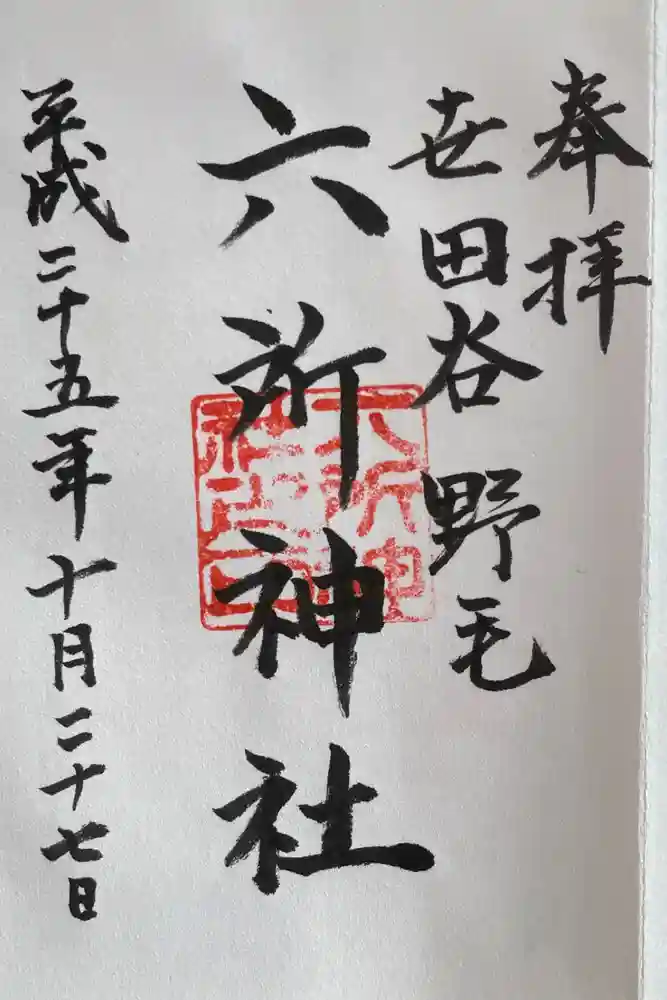 奉拝
世田谷 野毛
六所神社
平成二十五年十月二十七日